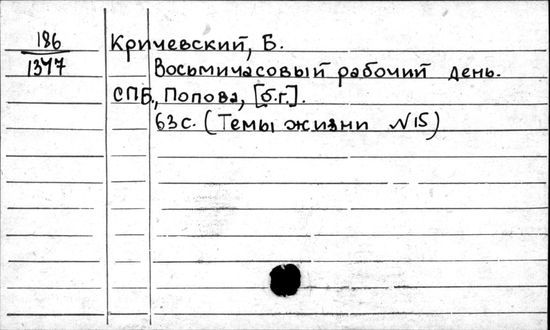 186
1377
Кричевский, Б.
Восьмичасовый рабочий день.
СПБ., Попова, [б.г.].
63с. (Темы жизни №15)